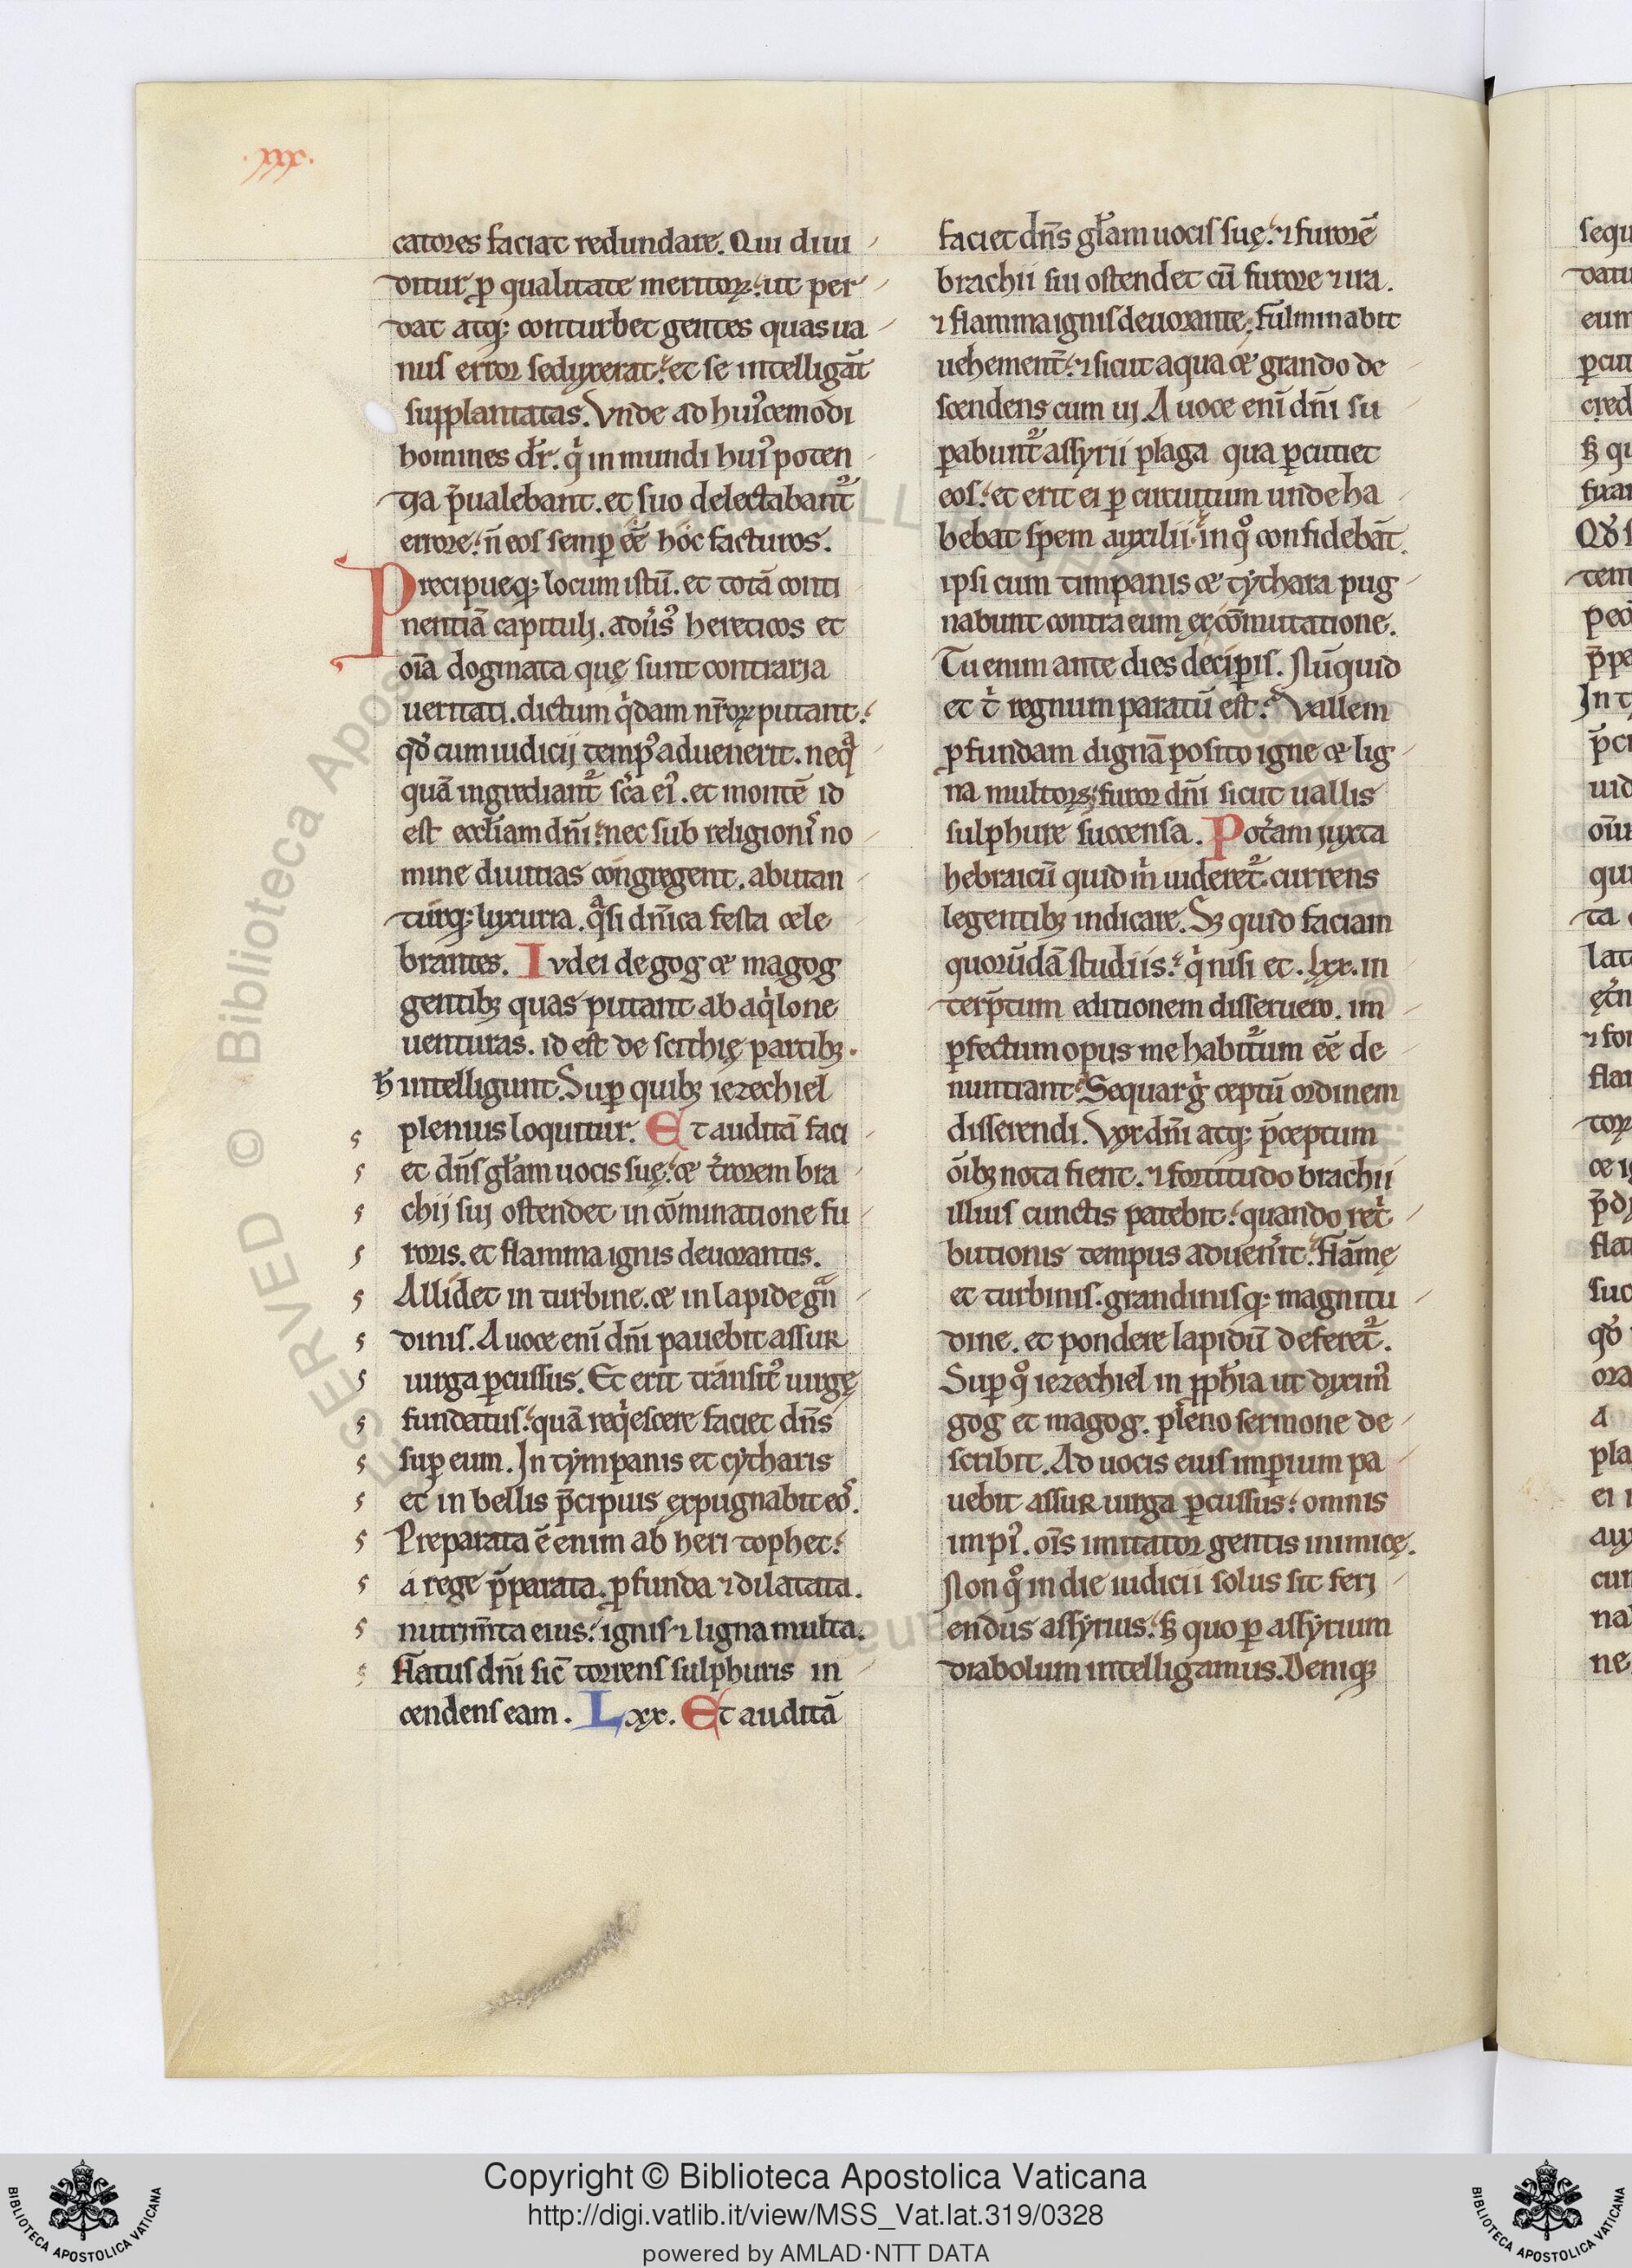 .xxx.
catores faciat redundare. Qui diui
ditur ꝑ qualitate meritoꝝ: ut per
dat atq; conturbet gentes quas ua
nus error seduxerat: et se intelligāt
supplantatas. Vnde ad hui᷒cemodi
homines dr̄. q̇ in mundi hui᷒ poten
tia p̄ualebant. et suo delectabant᷑
errore: n̄ eos semꝑ eē hoc facturos.
Precipueq; locum istū. et totā conti
nentiā capituli. adu̓s᷒ hereticos et
oīa dogmata quę sunt contraria
ueritati. dictum q̇dam nr̄oꝝ putant:
qd̓ cum iudicii temp᷒ aduenerit. neq̊
quā ingrediant᷑ sc̄a ei᷒. et montē id
est eccl̄iam dn̄i: nec sub religioni᷒ no
mine diuitias congregent. abutan
turq; luxuria. qͣsi dn̄ica festa cele
brantes. Iudei de gog ⁊ magog
gentibꝫ quas putant ab aq̇lone
uenturas. id est de scithię partibꝫ.
h̄ intelligunt. Suꝑ quibꝫ iezechiel
plenius loquitur. Et auditā faci
et dn̄s gl̄am uocis suę: ⁊ t̓rorem bra
chii sui ostendet in cōminatione fu
roris. et flamma ignis deuorantis.
Allidet in turbine. ⁊ in lapide gͣn
dinis. A uoce enī dn̄i pauebit assur
uirga ꝑcussus. Et erit transit᷒ uirgę
fundatus: quā req̇escere faciet dn̄s
suꝑ eum. In tympanis et cytharis
et in bellis p̄cipuis expugnabit eos.
Preparata ē enim ab heri tophet:
a rege p̄parata. ꝓfunda ⁊ dilatata.
nutrim̄ta eius: ignis ⁊ ligna multa.
Flatus dn̄i sic̄ torrens sulphuris in
cendens eam. Lxx. Et auditā
faciet dn̄s gl̄am uocis suę: ⁊ furorē
brachii sui ostendet cū furore ⁊ ira.
⁊ flamma ignis deuorante. fulminabit
uehement̄: ⁊ sicut aqua ⁊ grando de
scendens cum ui. A uoce enī dn̄i su
ꝑabunt᷑ assyrii plaga qua ꝑcutiet
eos: et erit ei ꝑ circuitum unde ha
bebat spem auxilii. in qͦ confidebāt.
ipsi cum timpanis ⁊ cythara pug
nabunt contra eum ex cōmutatione.
Tu enim ante dies deciꝑis. Nūquid
et t̓ regnum paratū est: Vallem
ꝓfundam dignā posito igne ⁊ lig
na multoꝝ: furor dn̄i sicut uallis
sulphure succensa. Pot̓am iuxta
hebraicū quid m̓ uideret᷑ currens
legentibꝫ indicare. Sꝫ quid faciam
quorūdā studiis: q̇ nisi et .lxx. in
terp̄tum editionem disseruero. im
ꝑfectum opus me habit᷑um eē de
nuntiant: Sequar g̓ ceptū ordinem
disserendi. Vox dn̄i atq; p̄ceptum
oīibꝫ nota fient. ⁊ fortitudo brachii
illius cunctis patebit: quando ret̓
butionis tempus aduen̓it. Flāmę
et turbinis. grandinisq; magnitu
dine. et pondere lapidū deferet᷑.
Suꝑ qͦ iezechiel in ꝓph̄ia ut dixim᷒
gog et magog. pleno sermone de
scribit. Ad uocis eius imꝑium pa
uebit assur uirga ꝑcussus: omnis
impi᷒. oīs imitator gentis inimicę.
Non qͦ in die iudicii solus sit feri
endus assyrius: sꝫ quo ꝑ assyrium
diabolum intelligamus. Deniqꝫ
Copyright © Biblioteca Apostolica Vaticana
http://digi.vatlib.it/view/MSS_Vat.lat.319/0328
powered by AMLAD·NTT DATA
BIBLIOTECA APOSTOLICA VATICANA
BIBLIOTECA APOSTOLICA VATICANA